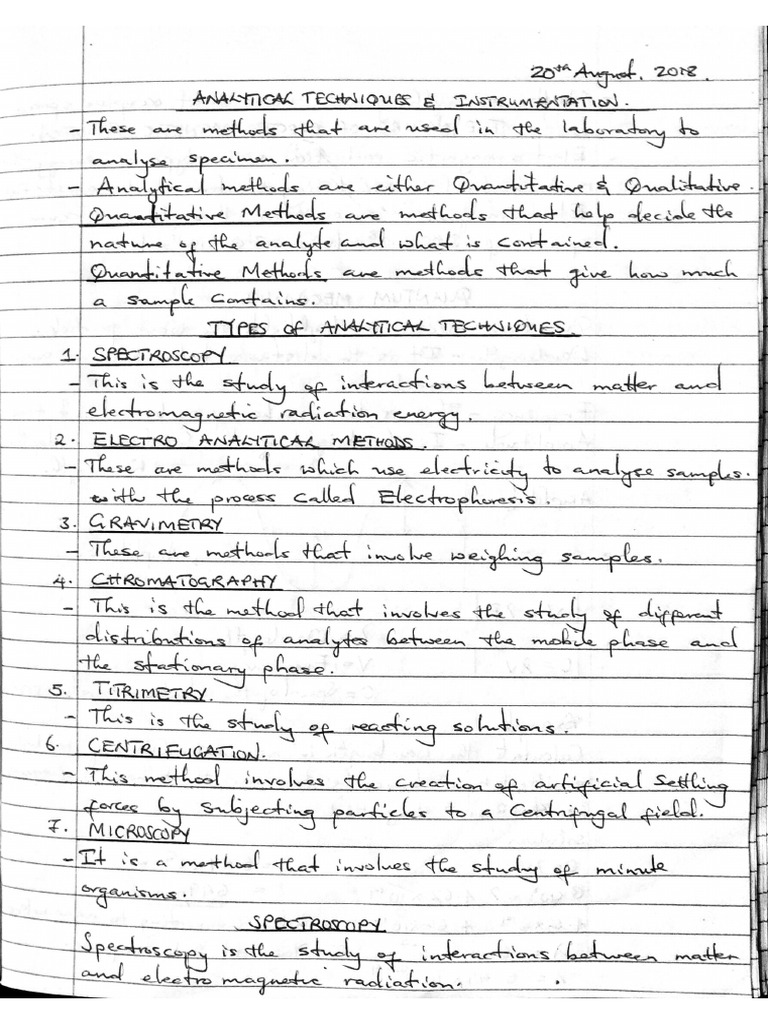 20th August, 2018.
ANALYTICAL TECHNIQUES & INSTRUMENTATION.
- These are methods that are used in the laboratory to
analyse specimen.
- Analytical methods are either Quantitative & Qualitative.
Quantitative Methods are methods that help decide the
nature of the analyte and what is contained.
Quantitative Methods are methods that give how much
a sample contains.
TYPES OF ANALYTICAL TECHNIQUES.
1. SPECTROSCOPY
- This is the study of interactions between matter and
electromagnetic radiation energy.
2. ELECTRO ANALYTICAL METHODS.
- These are methods which use electricity to analyse samples.
with the process called Electrophoresis.
3. GRAVIMETRY
- These are methods that involve weighing samples.
4. CHROMATOGRAPHY
- This is the method that involves the study of different
distributions of analytes between the mobile phase and
the stationary phase.
5. TITRIMETRY.
- This is the study of reacting solutions.
6. CENTRIFUGATION.
- This method involves the creation of artificial settling
forces by subjecting particles to a Centrifugal field.
7. MICROSCOPY
- It is a method that involves the study of minute
organisms.
SPECTROSCOPY
Spectroscopy is the study of interactions between matter
and electro magnetic radiation.